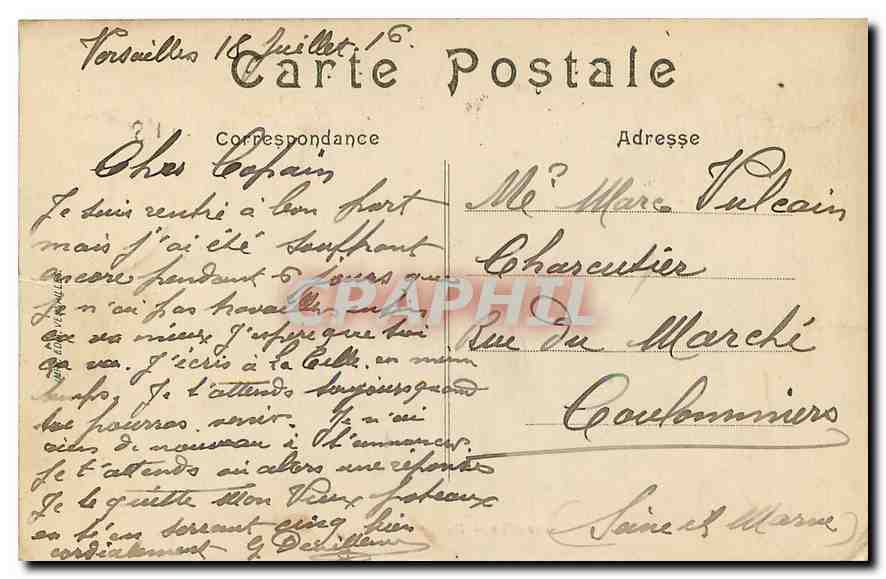 Versailles 18 Juillet. 16.
Carte Postale
Correspondance
Adresse
Cher Copain
Je suis rentré à bon port
mais j'ai été souffrant
encore pendant 6 jours que
je n'ai pas travaillé enfin
va mieux J'espère que toi
ça va. J'écris à la Celle en même
temps. Je t'attends toujours quand
tu pourras venir. Je n'ai
rien de nouveau à t'annoncer
Je t'attends ou alors une réponse
Je te quitte Mon Vieux poteaux
en t'en serrant cinq bien
cordialement G.
Mr Marc Vulcain
Charcutier
Rue du Marché
Coulommiers
Seine et Marne
CPAPHIL